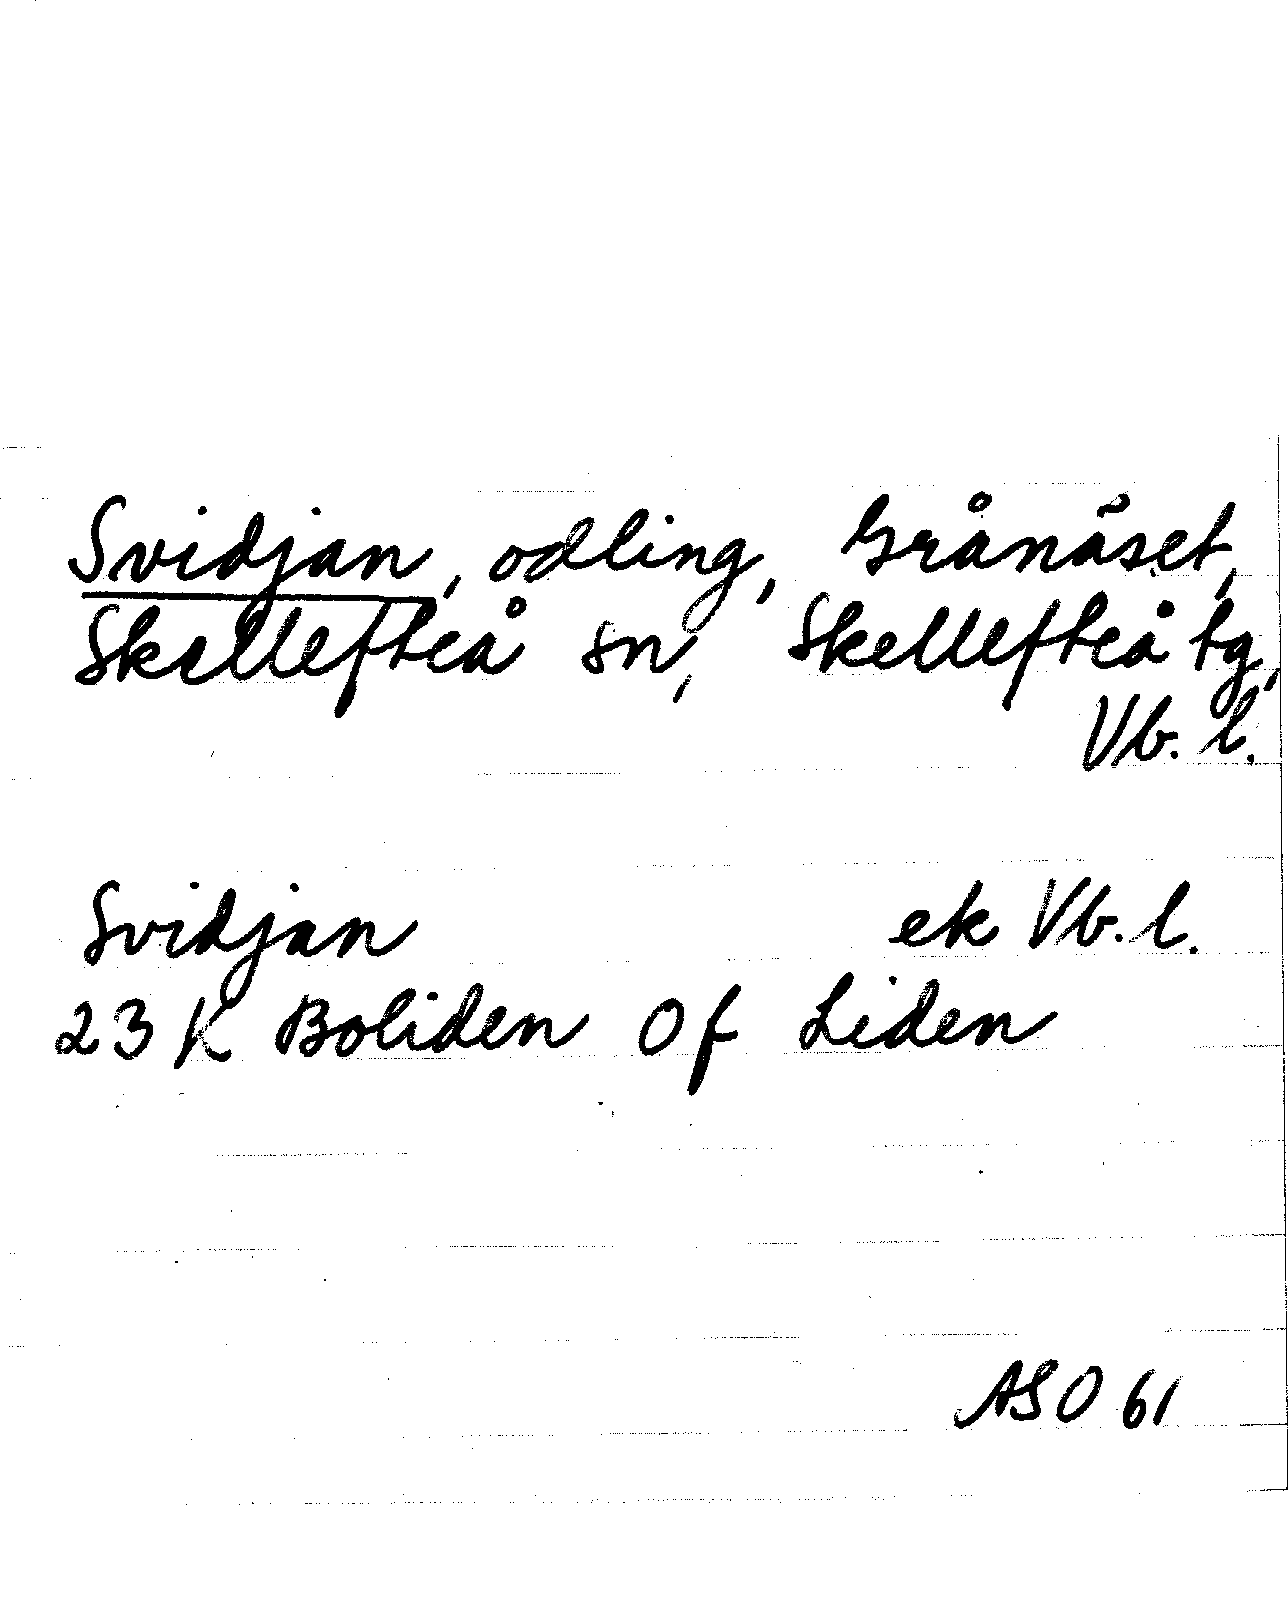 Svidjan, odling, Grånäset,
Skellefteå sn, Skellefteå tg,
Vb. l.
Svidjan ek Vb. l.
23 K Boliden 0 f Liden
ASO 61